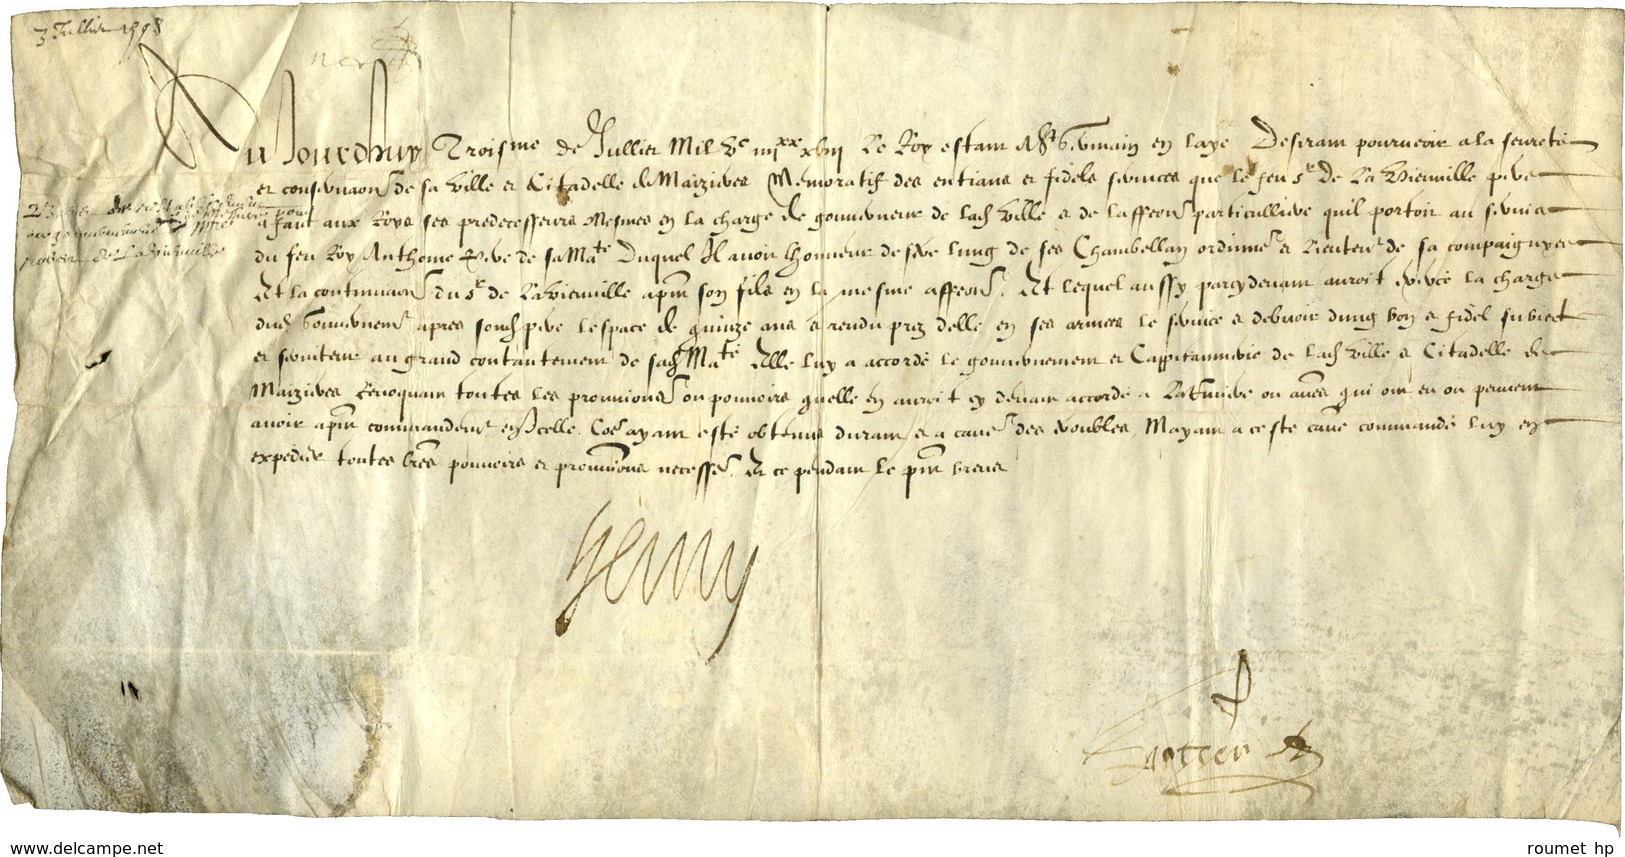 3 Juillier 1598
Aujourdhuy Troisme de Juillet Mil Vc iiiixx xviii Le Roy estant A St Germain en laye Desirant pourveoir a la seureté
et conservaon de sa Ville et Citadelle de Maizieres Memoratif des entians et fidels services que le feu sr De La Vieuville pere
a faict aux Roys ses predecesseurs Mesmes en la charge de gouverneur de lad Ville et de laffeon particulliere quil portoit au service
du feu Roy Anthoine Pere de sa Mate Duquel Il avoit lhonneur destre lung de ses Chambellan ordinres et Lieutent de sa compaignye
Et la continuaon du sr de La Vieuville apnt son fils en la mesme affeon. Et lequel aussy parcydevant auroit exercé la charge
dud Gouvernemt apres sond pere lespace de quinze ans et rendu prez delle en ses armees le service et debvoir dung bon et fidel subiect
et serviteur au grand contantement de sad Mate Elle luy a accordé le gouvernement et Cappitainnerie de lad Ville et Citadelle de
Maizieres Revoquant toutes les provisions ou pouvoirs quelle en auroit cy devant accordé a La et aues qui ont eu ou peuvent
avoir apnt commandemt en Icelle Coe ayant esté obtenus durant et a cause des troubles, Mayant a ceste cause commandé luy en
expedier toutes lres pouvoirs et provisions necessres Et ce pendant le pnt brevet
Henry
Potier
www.delcampe.net
roumet hp